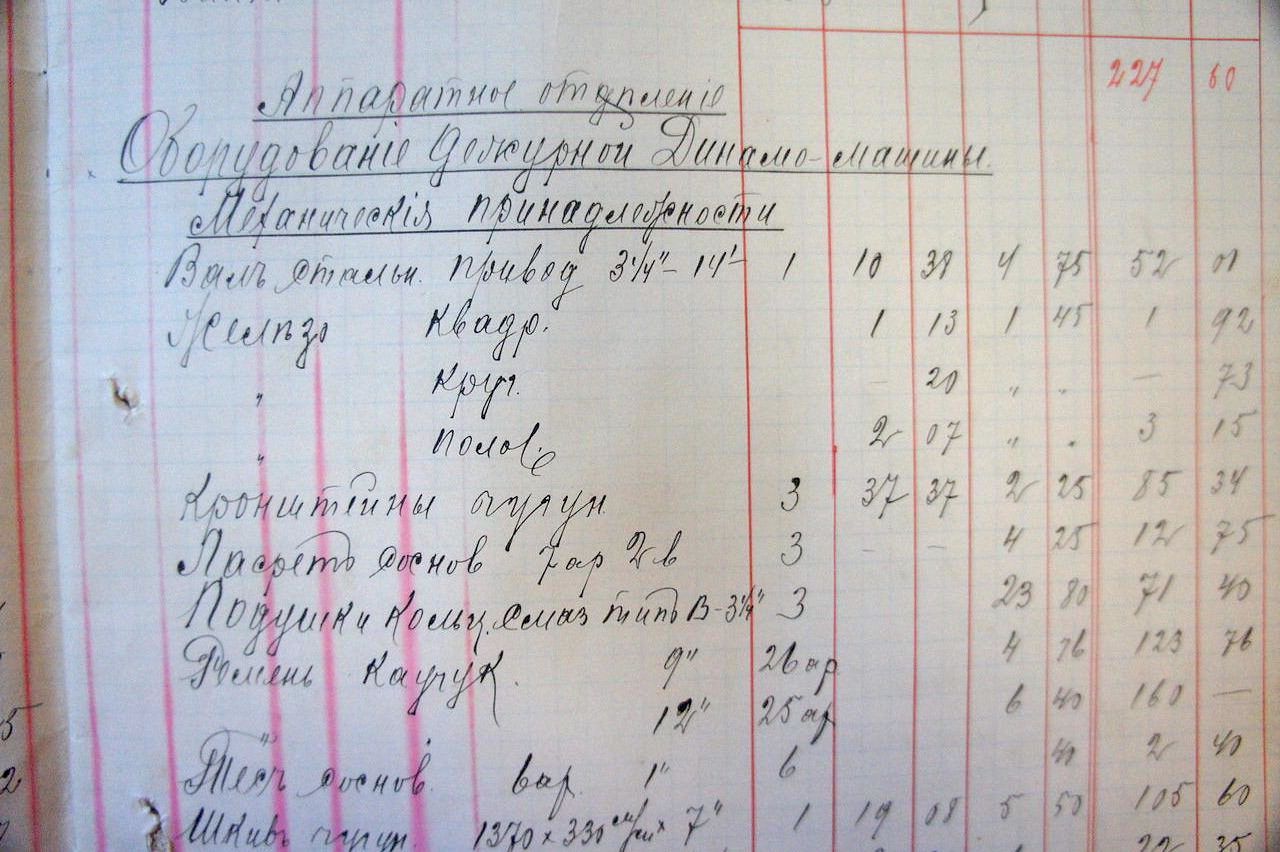 227 60
Аппаратное отдѣленіе
Оборудованіе дежурной Динамо-машины.
Механическія принадлежности
Валъ стальн. привод 3¼"– 14'– 1 10 38 4 75 52 01
Желѣзо квадр. 1 13 1 45 1 92
" круг. — 20 " " — 73
" полов. 2 07 " " 3 15
Кронштейны чугун. 3 37 37 2 25 85 34
соснов 7 ар 2 в 3 — — 4 25 12 75
Подушки кольц. смаз типъ В–3¼" 3 23 80 71 40
Ремень каучук. 9" 26 ар 4 76 123 76
" 12" 25 ар 6 40 160 —
Тесъ соснов. 6 ар. 1" 6 40 2 40
Шкивъ чугун. 1370 × 330 7" 1 19 08 5 50 105 60
22 35
5
2